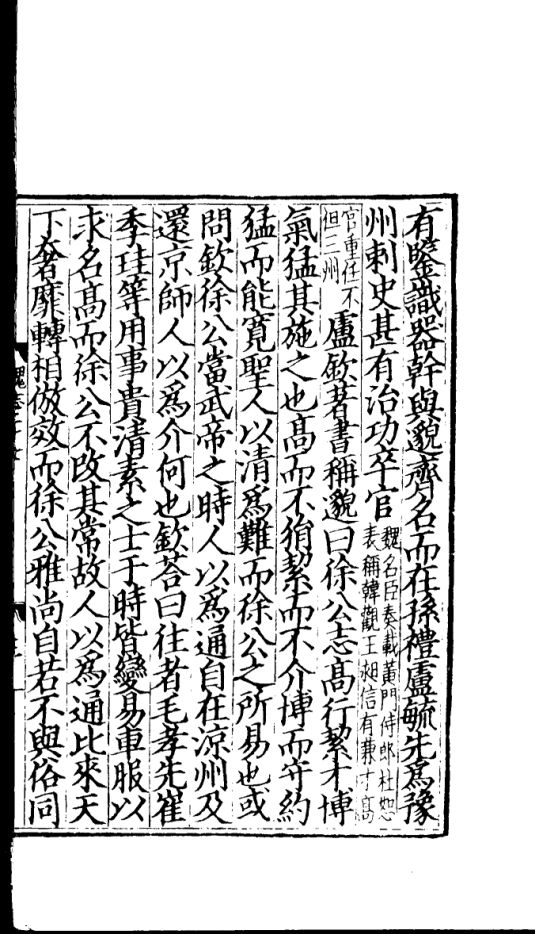 有鑒識器幹與邈齊名而在孫禮盧毓先爲豫
州刺史甚有治功卒官
魏名臣奏載黃門侍郎杜恕
表稱韓觀王昶信有兼才高
官重任不
但三州
盧欽著書稱邈曰徐公志高行絜才博
氣猛其施之也高而不狷絜而不介博而守約
猛而能寬聖人以清爲難而徐公之所易也或
問欽徐公當武帝之時人以爲通自在涼州及
還京師人以爲介何也欽荅曰往者毛孝先崔
季珪等用事貴清素之士于時皆變易車服以
求名高而徐公不改其常故人以爲通比來天
下奢靡轉相倣效而徐公雅尚自若不與俗同
魏志